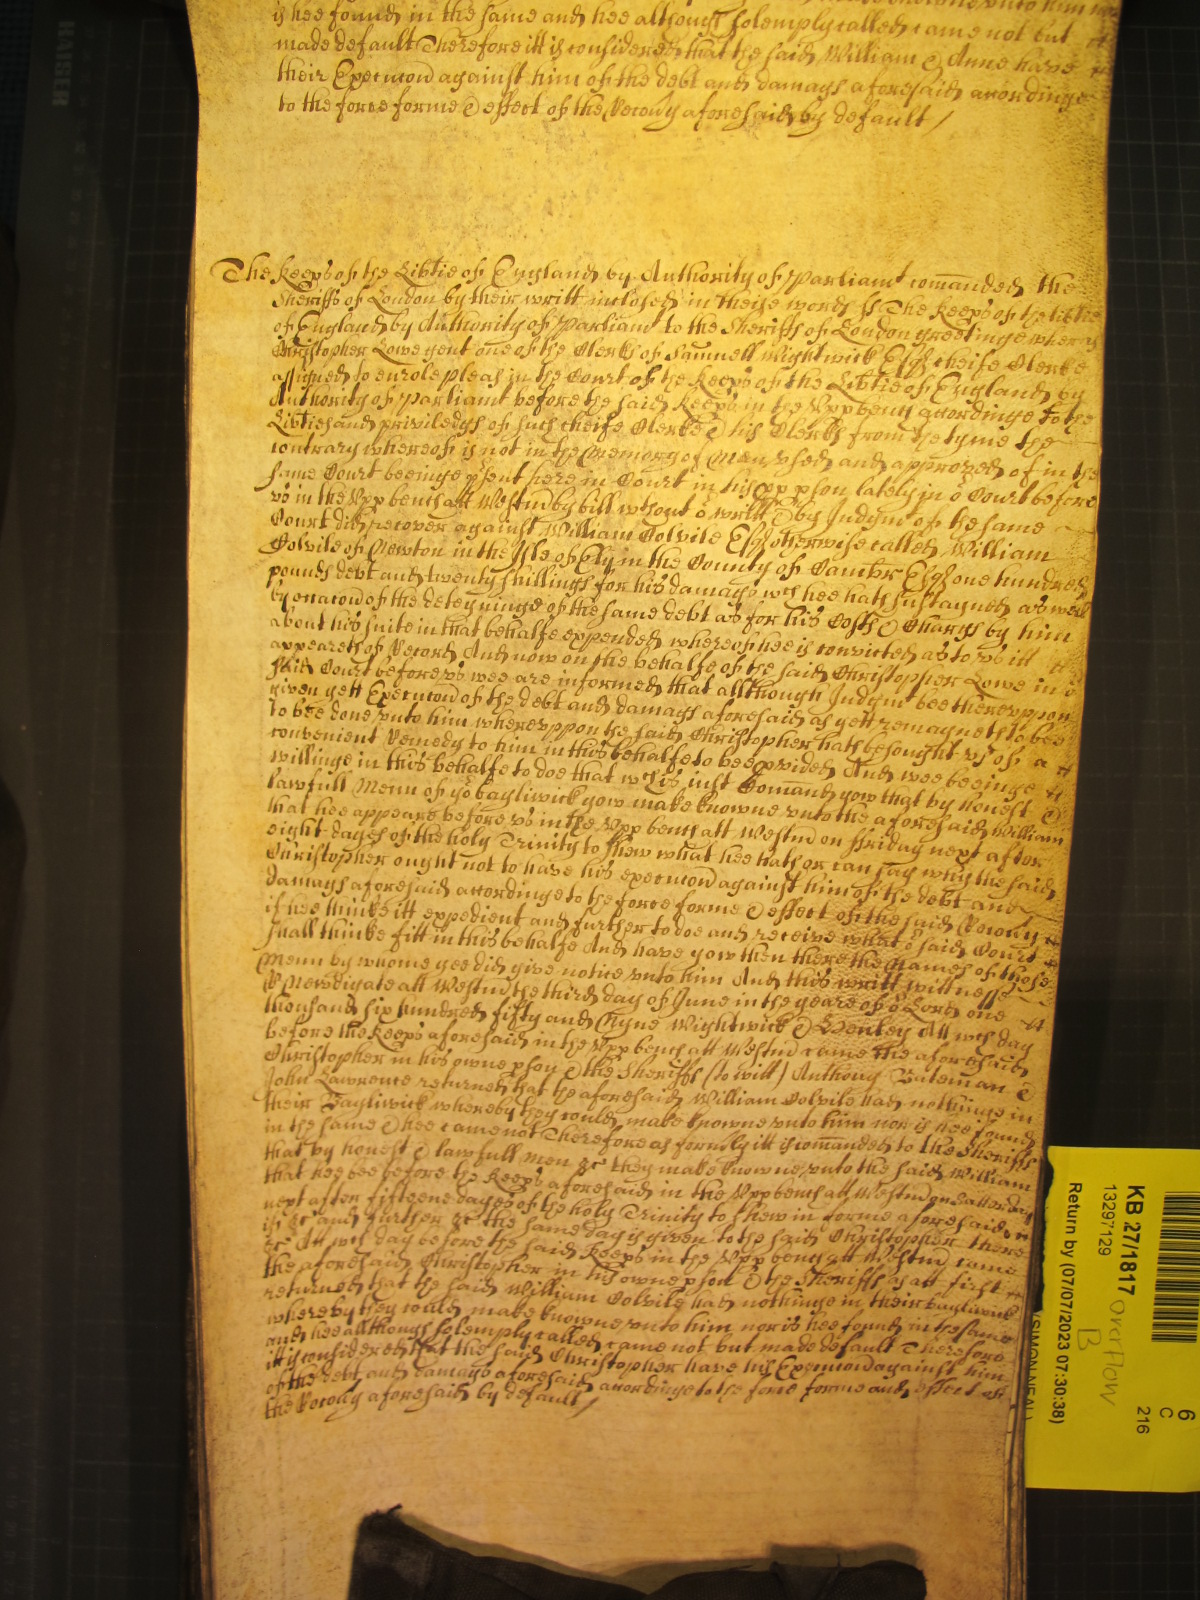 is hee found in the same and hee although solemply called came not but
made default Therefore itt is considered that the said William & Anne have
their Execucon against him of the debt and damags aforesaid accordinge
to the force forme & effect of the Recovy aforesaid by default /
The Keeps of the Libtie of England by Authority of Parliamt comanded the
Sheriffs of London by their writt inclosed in theise words ss The Keeps of the libtie
of England by Authority of Parliamt to the Sheriffs of London greetinge wheras
Christopher Lowe gent one of the Clerks of Samuell Wightwick Esqr cheife Clerke
assigned to enrole pleas in the Court of the Keeps of the Libtie of England by
Authority of Parliamt before the said Keeps in the Upp bench accordinge to the
Libties and priviledgs of such cheife Clerke & his Clerks from the tyme the
contrary whereof is not in the Memory of Man used and approved of in the
same Court beeinge psent here in Court in his pp pson lately in or Court before
us in the Upp bench att Westmr by bill wthout or writt & by Judgmt of the same
Court did recover against William Colvile Esqr otherwise called William
Colvile of Newton in the Isle of Ely in the County of Cambr Esqr one hundred
pounds debt and twenty shillings for his damags wch hee hath susteyned as well
by occacon of the deteyninge of the same debt as for his Costs & Chargs by him
about his suite in that behalfe expended whereof hee is convicted as to us itt
appeareth of Record And now on the behalfe of the said Christopher Lowe in or
said Court before us wee are informed that allthough Judgmt bee thereuppon
given yett Execucon of the debt and damags aforesaid as yett remayneth to bee
to bee done unto him whereuppon the said Christopher hath besought us of a
convenient Remedy to him in this behalfe to bee pvided And wee beeinge
willinge in this behalfe to doe that wch is just Comand yow that by honest &
lawfull Menn of yor bayliwick yow make knowne unto the aforesaid William
that hee appeare before us in the Upp bench att Westmr on ffriday next after
eight dayes of the holy Trinity to shew what hee hath or can say why the said
Christopher ought not to have his execucon against him of the debt and
damags aforesaid accordinge to the force forme & effect of the said Recovy
if hee thinke itt expedient and further to doe and receive what or said Court
shall thinke fitt in this behalfe And have yow then there the Names of those
Menn by whome yee did give notice unto him And this writt wittnesse
R Newdigate att Westmr the third day of June in the yeare of or Lord one
thousand six hundred fifty and Nyne Wightwick & Henley Att wch day
before the Keeps aforesaid in the Upp bench att Westmr came the aforesaid
Christopher in his owne pson & the Sheriffs (to witt) Anthony Bateman &
John Lawrence returned that the aforesaid William Colvile had nothinge in
their Bayliwick whereby they could make knowne unto him nor is hee found
in the same & hee came not Therefore as formrly itt is comanded to the Sheriffs
that by honest & lawfull men &c they make knowne unto the said William
that hee bee before the Keeps aforesaid in the Upp bench att Westmr on Satterday
next after fifteene dayes of the holy Trinity to shew in forme aforesaid
if &c and further &c the same day is given to the said Christopher there
&c Att wch day before the said Keeps in the Upp bench att Westmr came
the aforesaid Christopher in his owne pson & the Sheriffs as att first
returned that the said William Colvile had nothinge in their bayliwick
whereby they could make knowne unto him nor is hee found in the same
and hee allthough solemply called came not but made default Therefore
itt is considered that the said Christopher have his Execucon against him
of the debt and damags aforesaid accordinge to the force forme and effect of
the Recovy aforesaid by default /
KB 27/1817 overflow
13297129 B
Return by (07/07/2023 07:30:38)
(SIMON NEAL)
6
C
216